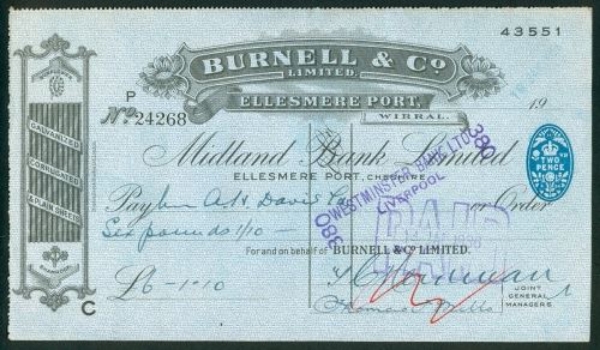 43551
BURNELL & Co.
LIMITED.
ELLESMERE PORT,
WIRRAL.
P
No. 24268
19
GALVANIZED
CORRUGATED
& PLAIN SHEETS
Midland Bank Limited
ELLESMERE PORT, CHESHIRE
TWO
PENCE
380
WESTMINSTER BANK LTD
LIVERPOOL
380
PAID
Pay A. H. Davis or Order
Six pounds 1/10 —
For and on behalf of BURNELL & Co LIMITED.
£6-1-10
JOINT
GENERAL
MANAGERS
Thomas Mills
C